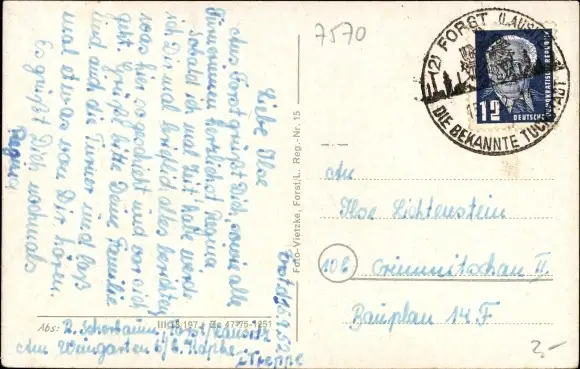 7570
(2) FORST (LAUSITZ)
DIE BEKANNTE TUCHSTADT
12
DEUTSCHE
DEMOKRATISCHE REPUBLIK
Forst, 25.9.52
Liebe Ilse
Aus Forst grüßt Dich, sowie alle
Turnerinnen herzlichst Regina.
Sobald ich mal Zeit habe werde
ich Dir mal brieflich alles berichten
was hier so passiert und vor sich
geht. Grüße bitte Deine Familie
und auch die Turner und lass
mal etwas von Dir hören.
Es grüßt Dich nochmals
Regina
Foto-Vietzke, Forst/L. Reg.-Nr. 15
An
Ilse Lichtenstein
10b Crimmitschau II
Bauplan 14 F
III/18/197 - Zc 4775-1251
Abs: R. Scherbaum, Forst/Lausitz
Am Weingarten 6/b. Köpke
2 Treppe
2,-